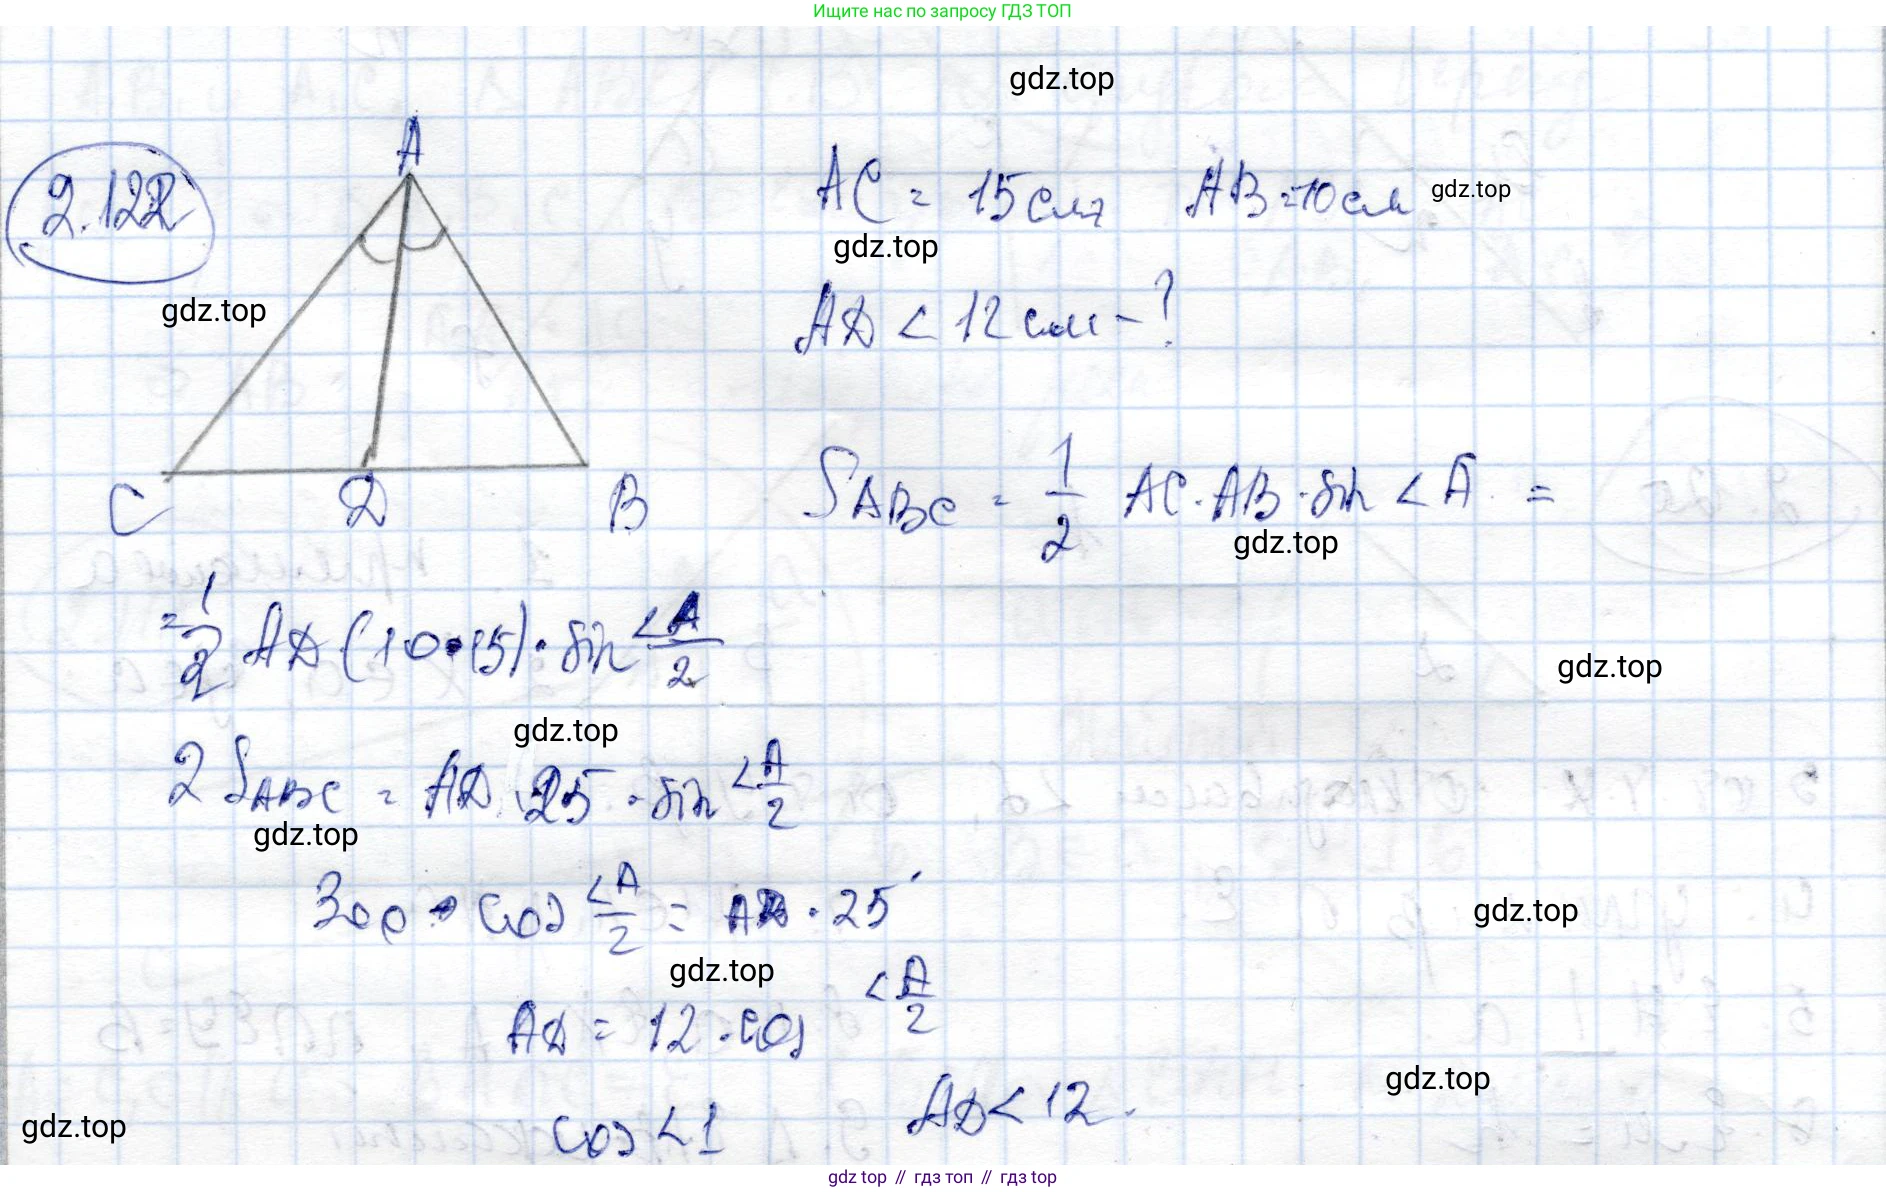 Ищите нас по запросу ГДЗ ТОП
gdz.top
2.122
A
AC = 15см, AB = 10 см
gdz.top
gdz.top
gdz.top
AD < 12 см - ?
C D B
S ABC = 1/2 AC · AB · sin <A =
gdz.top
= 1/2 AD (10 · 15) · sin <A/2
gdz.top
gdz.top
2 S ABC = AD 25 · sin <A/2
gdz.top
300 · cos <A/2 = AD · 25
gdz.top
gdz.top
AD = 12 · cos <A/2
gdz.top
cos < 1 AD < 12.
gdz.top
gdz top // гдз топ // гдз top